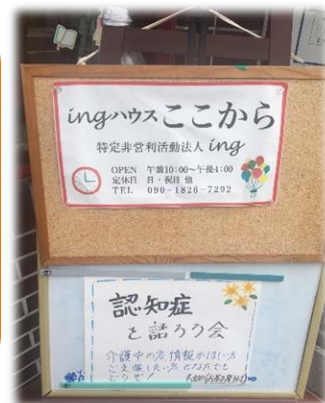 ingハウスここから
特定非営利活動法人 ing
OPEN 午前10:00〜午後4:00
定休日 日・祝日 他
TEL 090-1826-7292
認知症
と話ろう会
介護中の方 情報がほしい方